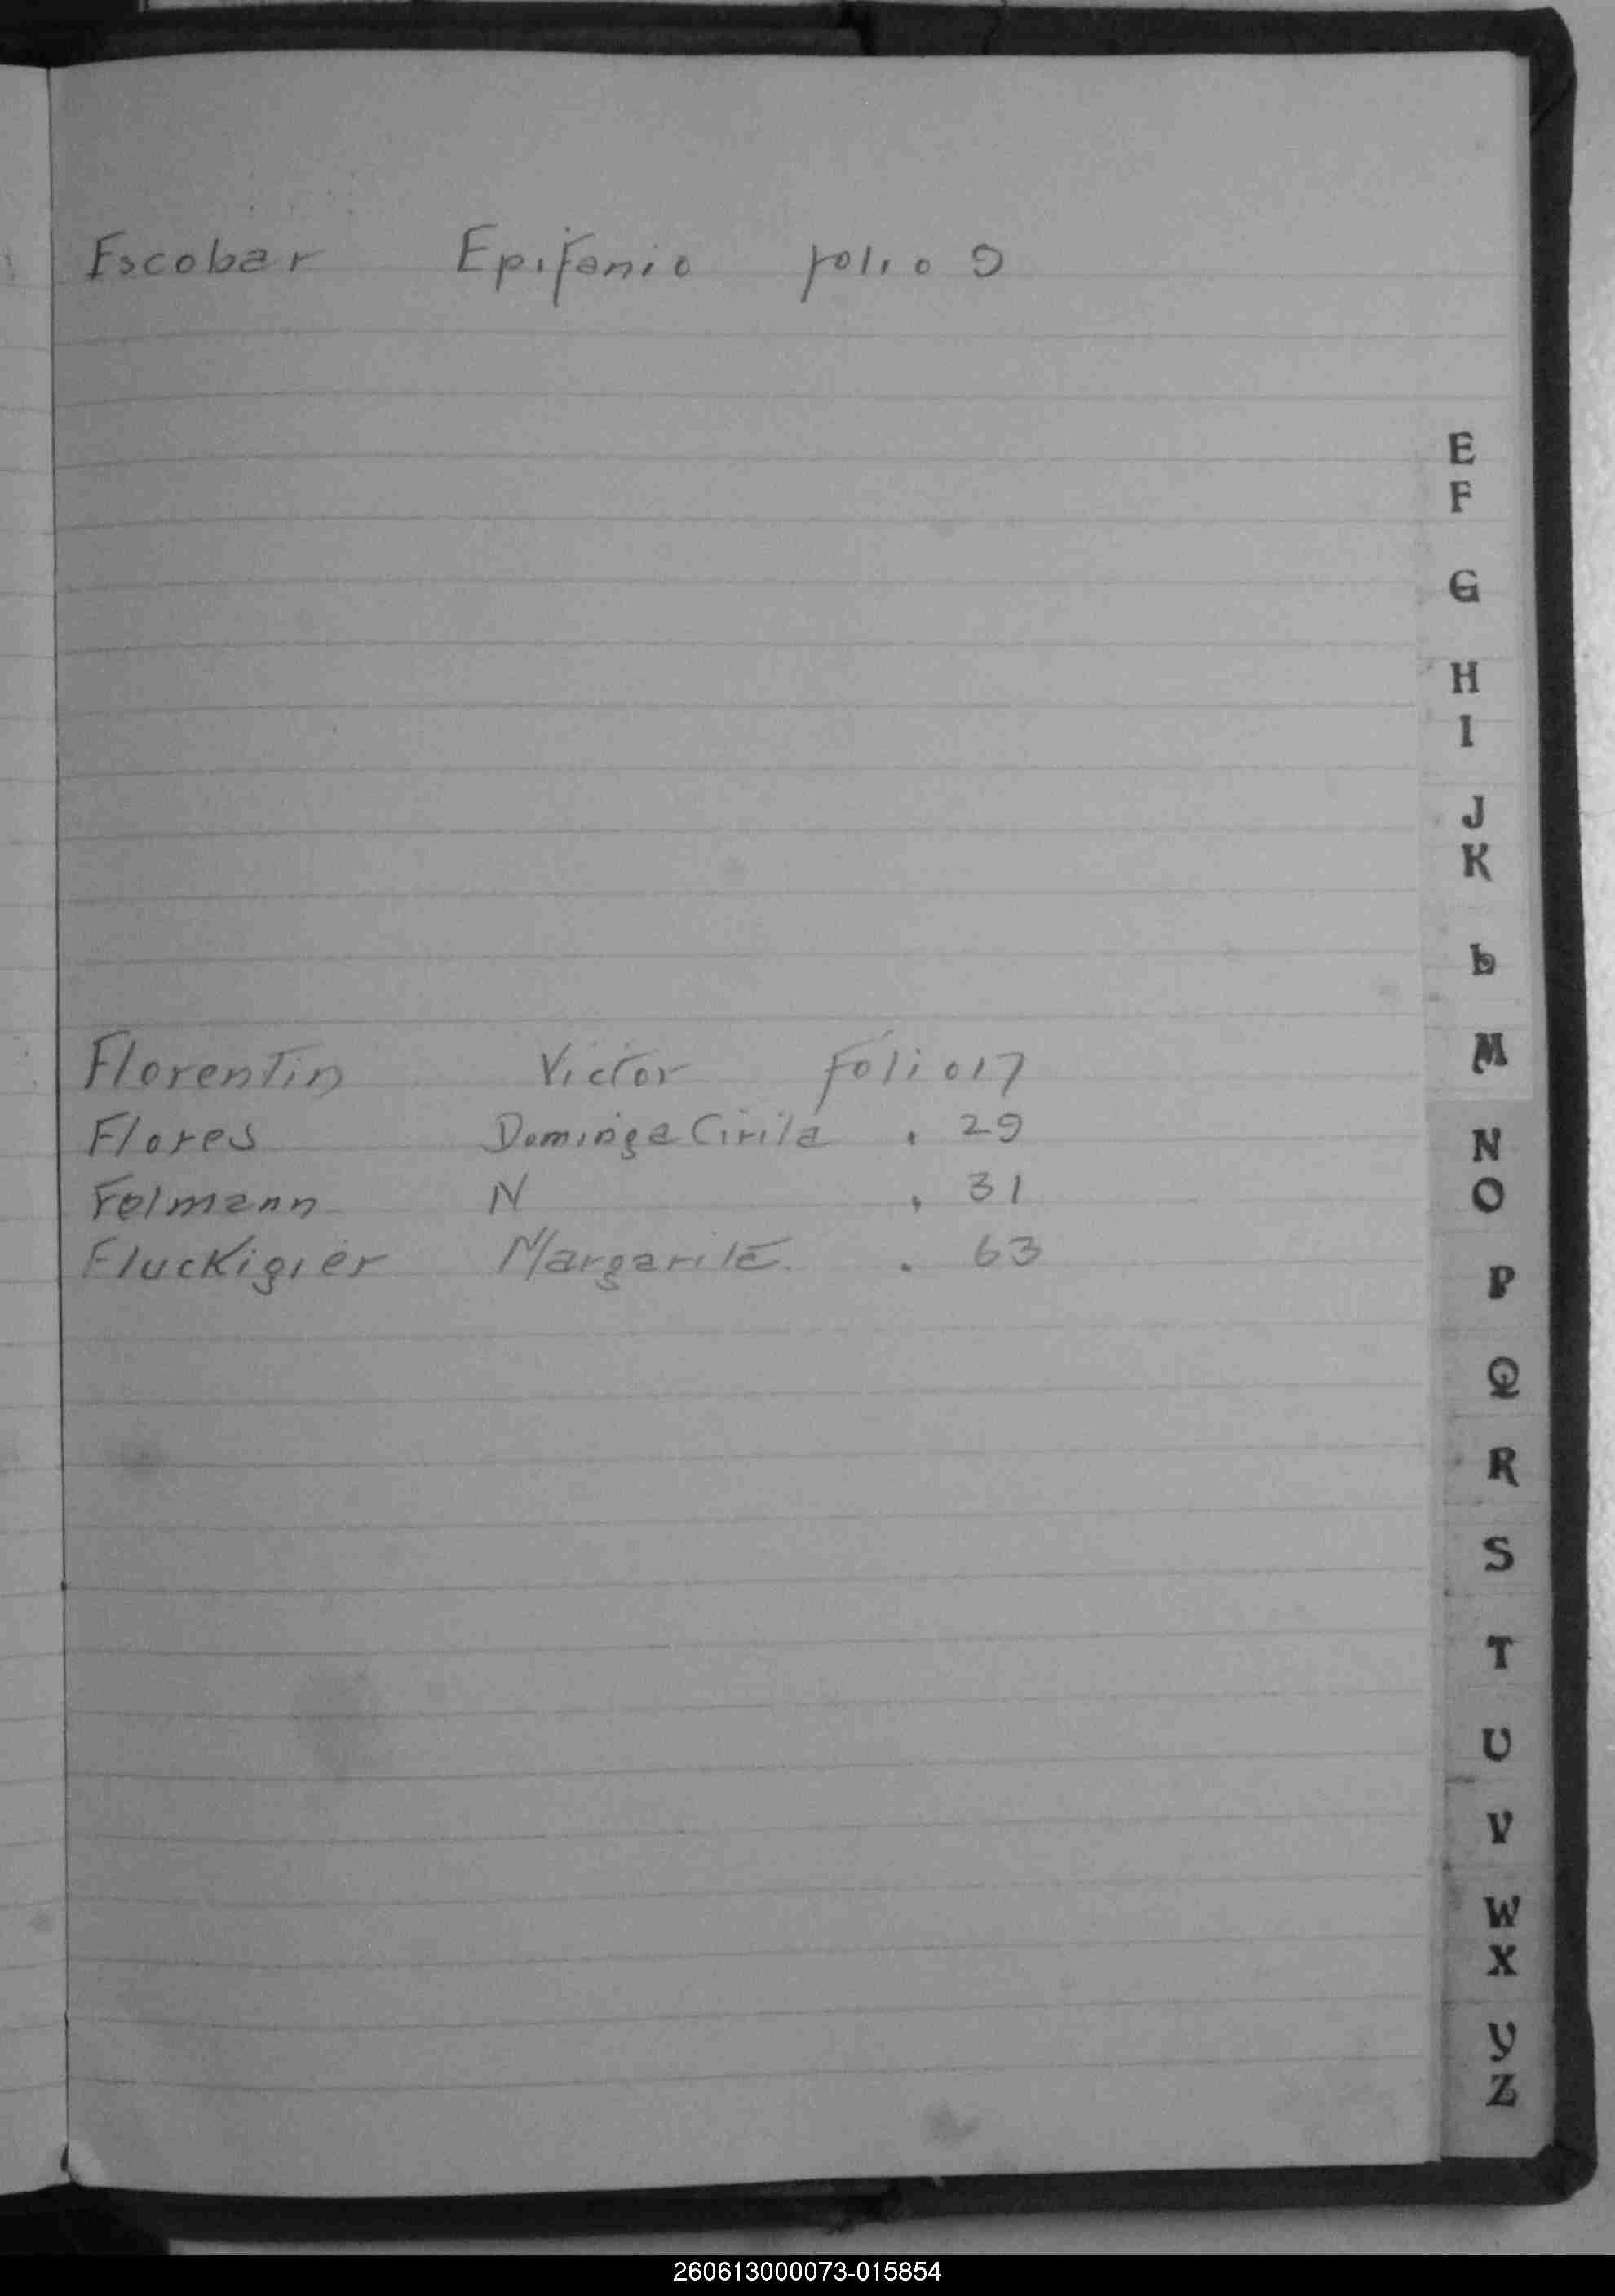 Escobar Epifanio folio 9
E
F
G
H
I
J
K
L
Florentin Victor Folio 17
M
Flores Dominga Cirila . 29
N
Felmann N , 31
O
Fluckigier Margarita . 63
P
Q
R
S
T
U
V
W
X
Y
Z
260613000073-015854